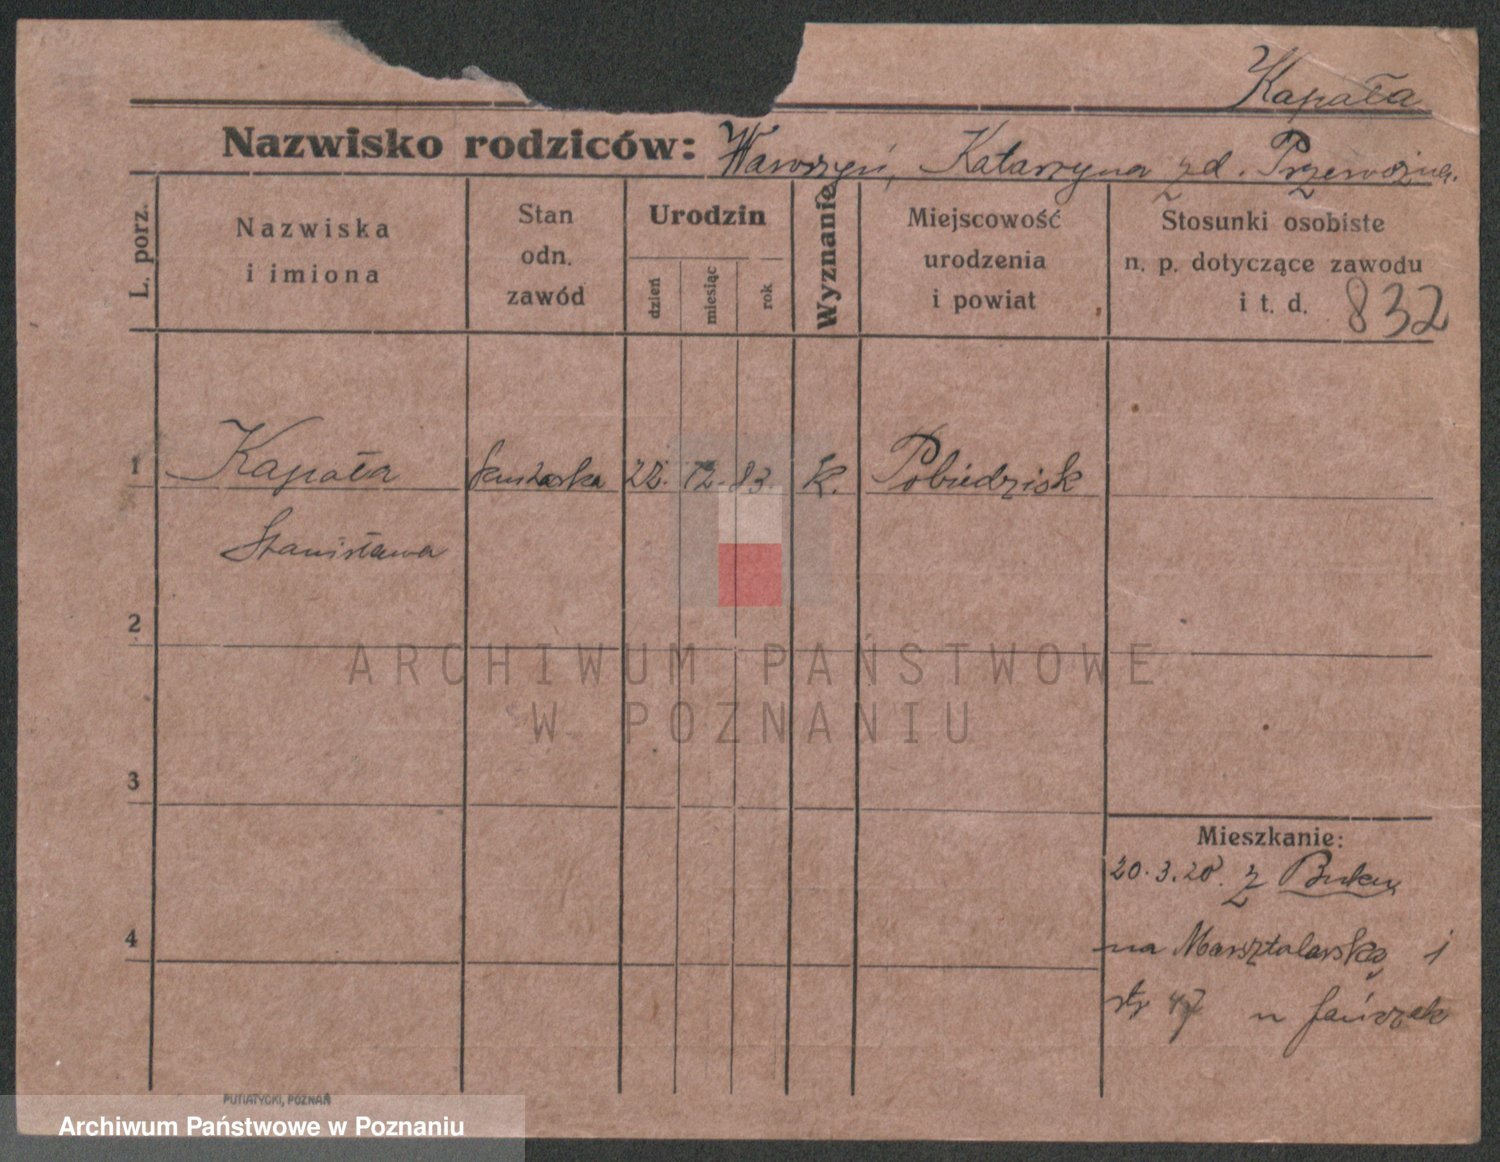 Kapała
Nazwisko rodziców: Wawrzyn, Katarzyna z d. Przewoźna.
L. porz.
Nazwiska
i imiona
Stan
odn.
zawód
Urodzin
dzień
miesiąc
rok
Wyznanie
Miejscowość
urodzenia
i powiat
Stosunki osobiste
n. p. dotyczące zawodu
i t. d. 832
1 Kapała 22. 12. 83. k. Pobiedzisk
Stanisława
2
3
4
Mieszkanie:
20.3.20. z Buku
na Masztalarską 1
47 u
ARCHIWUM PAŃSTWOWE
W POZNANIU
PUTIATYCKI, POZNAŃ
Archiwum Państwowe w Poznaniu